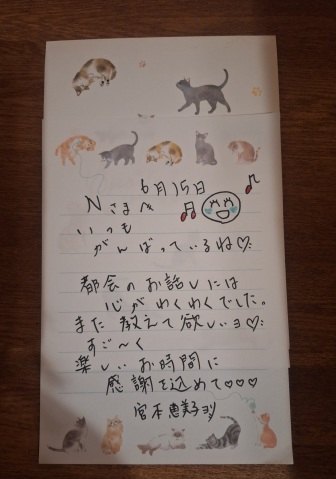 6月15日
Nさまへ
いつも
がんばっているね♡
都会のお話しには
心がわくわくでした。
また教えて欲しいョ♡
すご〜く
楽しいお時間に
感謝を込めて♡♡♡
宮本恵美子ヨリ